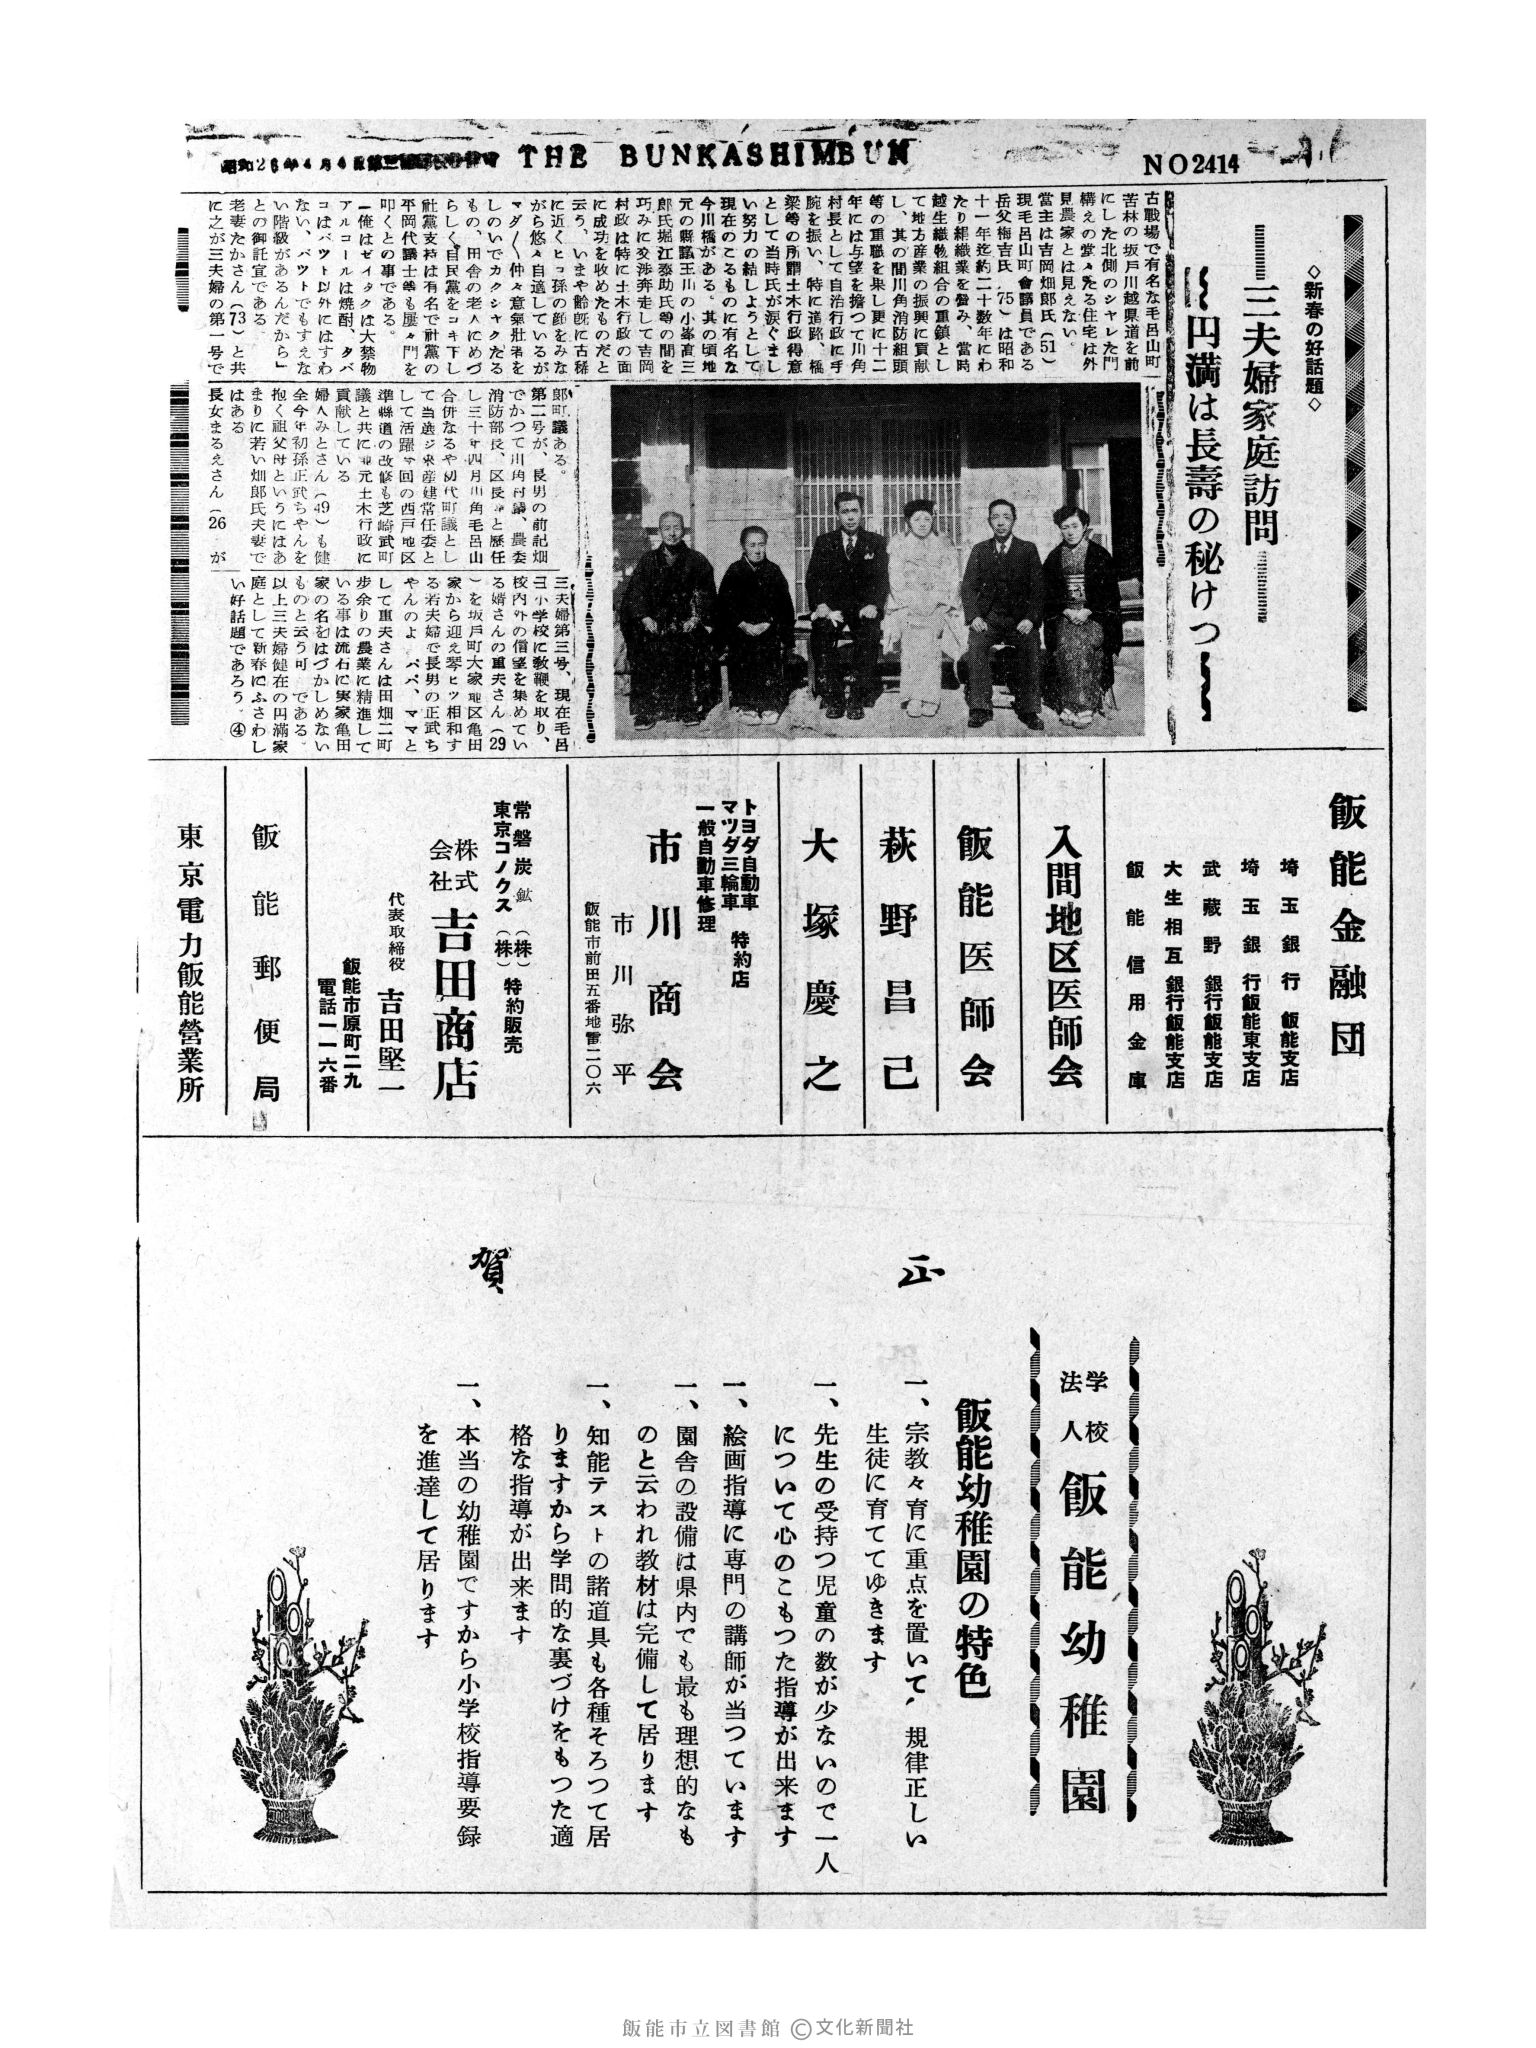 THE BUNKASHIMBUN
NO2414
◇新春の好話題◇
三夫婦家庭訪問
円満は長壽の秘けつ
古戰場で有名な毛呂山町
苦林の坂戸川越県道を前
にした北側のシヤレた門
構えの堂々たる住宅は外
見農家とは見えない。
當主は吉岡畑郎氏（51）
現毛呂山町會議員である
岳父梅吉氏（75）は昭和
十一年迄約二十数年にわ
たり組織業を営み、當時
越生織物組合の重鎮とし
て地方産業の振興に貢献
し、其の間川角消防組頭
等の重職を果し更に十二
年には与望を擔つて川角
村長として自治行政に手
腕を振い、特に道路、橋
梁等の所謂土木行政得意
として当時氏が涙ぐまし
い努力の結しようとして
現在のこるものに有名な
今川橋がある。其の頃地
元の縣議王川の小峯直三
郎氏堀江泰助氏等の間を
巧みに交渉奔走して吉岡
村政は特に土木行政の面
に成功を收めたものだと
云う、いまや齢既に古稀
に近くヒコ孫の顔をみな
がら悠々自適しているが
マダ〳〵仲々意氣壯者を
しのいでカクシヤクたる
もの、田舎の老人にめづ
らしく自民黨をコキ下し
社黨支持は有名で社黨の
平岡代議士等も屡々門を
叩くとの事である。
「俺はゼイタクは大禁物
アルコールは焼酎、タバ
コはバツト以外にはすわ
ない、バツトでもすえな
い階級があるんだから」
との御託宣である。
老妻たかさん（73）と共
に之が三夫婦の第一号で
郎町議ある。
第二号が、長男の前記畑
でかつて川角村議、農委
消防部長、区長等と歴任
し三十年四月川角毛呂山
合併なるや初代町議とし
て当選シ来産建常任委と
して活躍今回の西戸地区
準縣道の改修も芝崎武町
議と共に地元土木行政に
貢献している
婦人みとさん（49）も健
全今年初孫正武ちやんを
抱く祖父母というにはあ
まりに若い畑郎氏夫妻で
はある
長女まるえさん（26）が
三夫婦第三号、現在毛呂
小学校に教鞭を取り、
校内外の信望を集めてい
る婿さんの重夫さん（29
）を坂戸町大家地区亀田
家から迎え琴ヒツ相和す
る若夫婦で長男の正武ち
やんのよ パパ、ママと
して重夫さんは田畑二町
歩余りの農業に精進して
いる事は流石に実家亀田
家の名をはづかしめない
ものと云う可 である。
以上三夫婦健在の円滿家
庭として新春にふさわし
い好話題であろう。④
飯能金融団
埼玉銀行 飯能支店
埼玉銀行飯能東支店
武蔵野銀行飯能支店
大生相互銀行飯能支店
飯能信用金庫
入間地区医師会
飯能医師会
萩野昌己
大塚慶之
トヨダ自動車
マツダ三輪車 特約店
一般自動車修理
市川商会
市川弥平
飯能市前田五番地電二〇六
常磐炭鉱（株）
東京コノクス（株）特約販売
株式会社 吉田商店
代表取締役 吉田堅一
飯能市原町二九
電話一一六番
飯能郵便局
東京電力飯能営業所
賀 正
学校法人 飯能幼稚園
飯能幼稚園の特色
一、宗教々育に重点を置いて、規律正しい
生徒に育ててゆきます
一、先生の受持つ児童の数が少ないので一人
について心のこもつた指導が出来ます
一、絵画指導に専門の講師が当つています
一、園舎の設備は県内でも最も理想的なも
のと云われ教材は完備して居ります
一、知能テストの諸道具も各種そろつて居
りますから学問的な裏づけをもつた適
格な指導が出来ます
一、本当の幼稚園ですから小学校指導要録
を進達して居ります
飯能市立図書館 ©文化新聞社